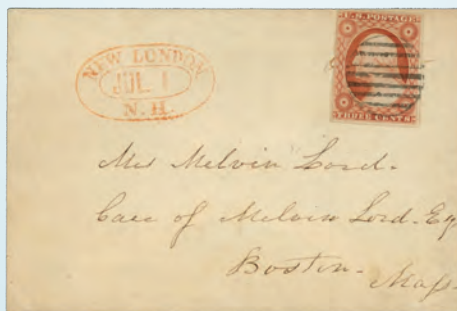 NEW LONDON
JUL 1
N.H.
U.S. POSTAGE
THREE CENTS
Mrs Melvin Lord.
Care of Melvin Lord. Esq
Boston.
Mass